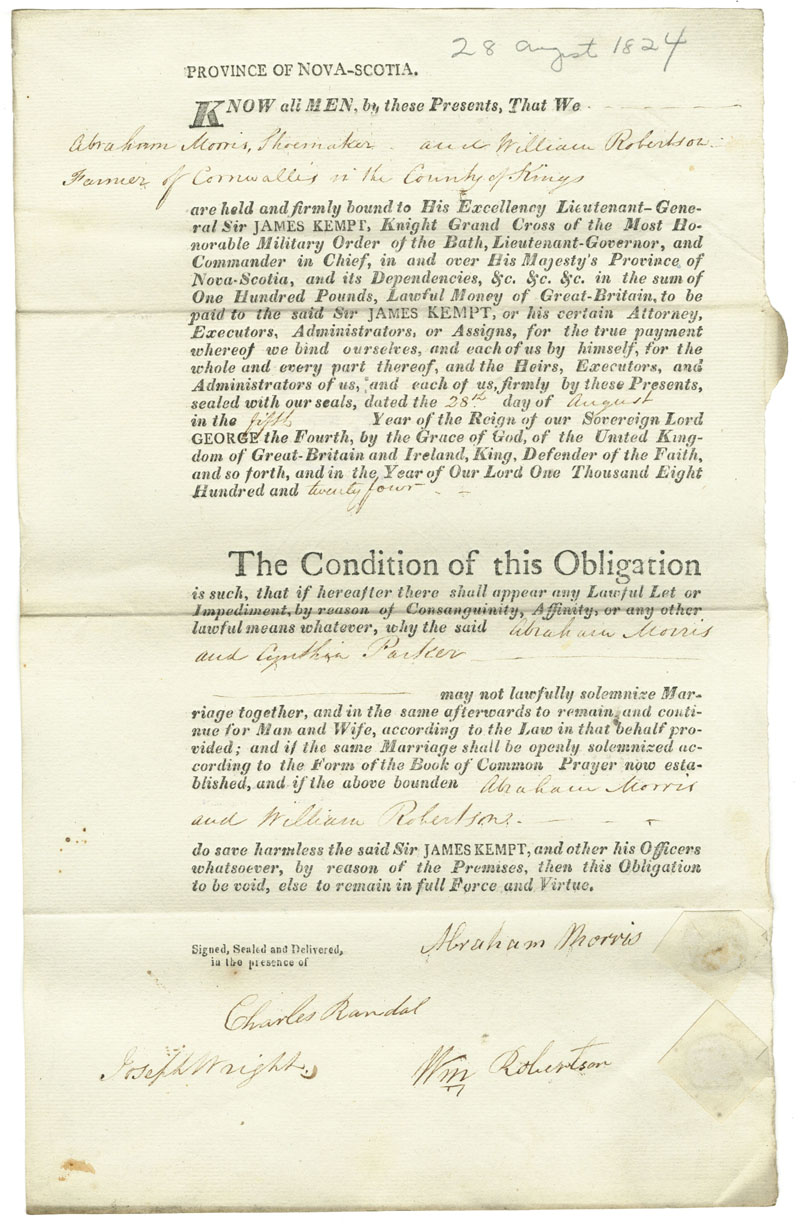 28 August 1824
PROVINCE OF NOVA-SCOTIA.
KNOW all MEN, by these Presents, That We
Abraham Morris, Shoemaker - and William Robertson
Farmer of Cornwallis in the County of Kings
are held and firmly bound to His Excellency Lieutenant-Gene-
ral Sir JAMES KEMPT, Knight Grand Cross of the Most Ho-
norable Military Order of the Bath, Lieutenant-Governor, and
Commander in Chief, in and over His Majesty's Province of
Nova-Scotia, and its Dependencies, &c. &c. &c. in the sum of
One Hundred Pounds, Lawful Money of Great-Britain, to be
paid to the said Sir JAMES KEMPT, or his certain Attorney,
Executors, Administrators, or Assigns, for the true payment
whereof we bind ourselves, and each of us by himself, for the
whole and every part thereof, and the Heirs, Executors, and
Administrators of us, and each of us, firmly by these Presents,
sealed with our seals, dated the 28th day of August
in the fifth Year of the Reign of our Sovereign Lord
GEORGE the Fourth, by the Grace of God, of the United King-
dom of Great-Britain and Ireland, King, Defender of the Faith,
and so forth, and in the Year of Our Lord One Thousand Eight
Hundred and twenty four - -
The Condition of this Obligation
is such, that if hereafter there shall appear any Lawful Let or
Impediment, by reason of Consanguinity, Affinity, or any other
lawful means whatever, why the said Abraham Morris
and Cynthia Parker
may not lawfully solemnize Mar-
riage together, and in the same afterwards to remain and conti-
nue for Man and Wife, according to the Law in that behalf pro-
vided; and if the same Marriage shall be openly solemnized ac-
cording to the Form of the Book of Common Prayer now esta-
blished, and if the above bounden Abraham Morris
and William Robertson. - - -
do save harmless the said Sir JAMES KEMPT, and other his Officers
whatsoever, by reason of the Premises, then this Obligation
to be void, else to remain in full Force and Virtue.
Signed, Sealed and Delivered,
in the presence of
Abraham Morris
Charles Randal
Joseph Wright.
Wm Robertson